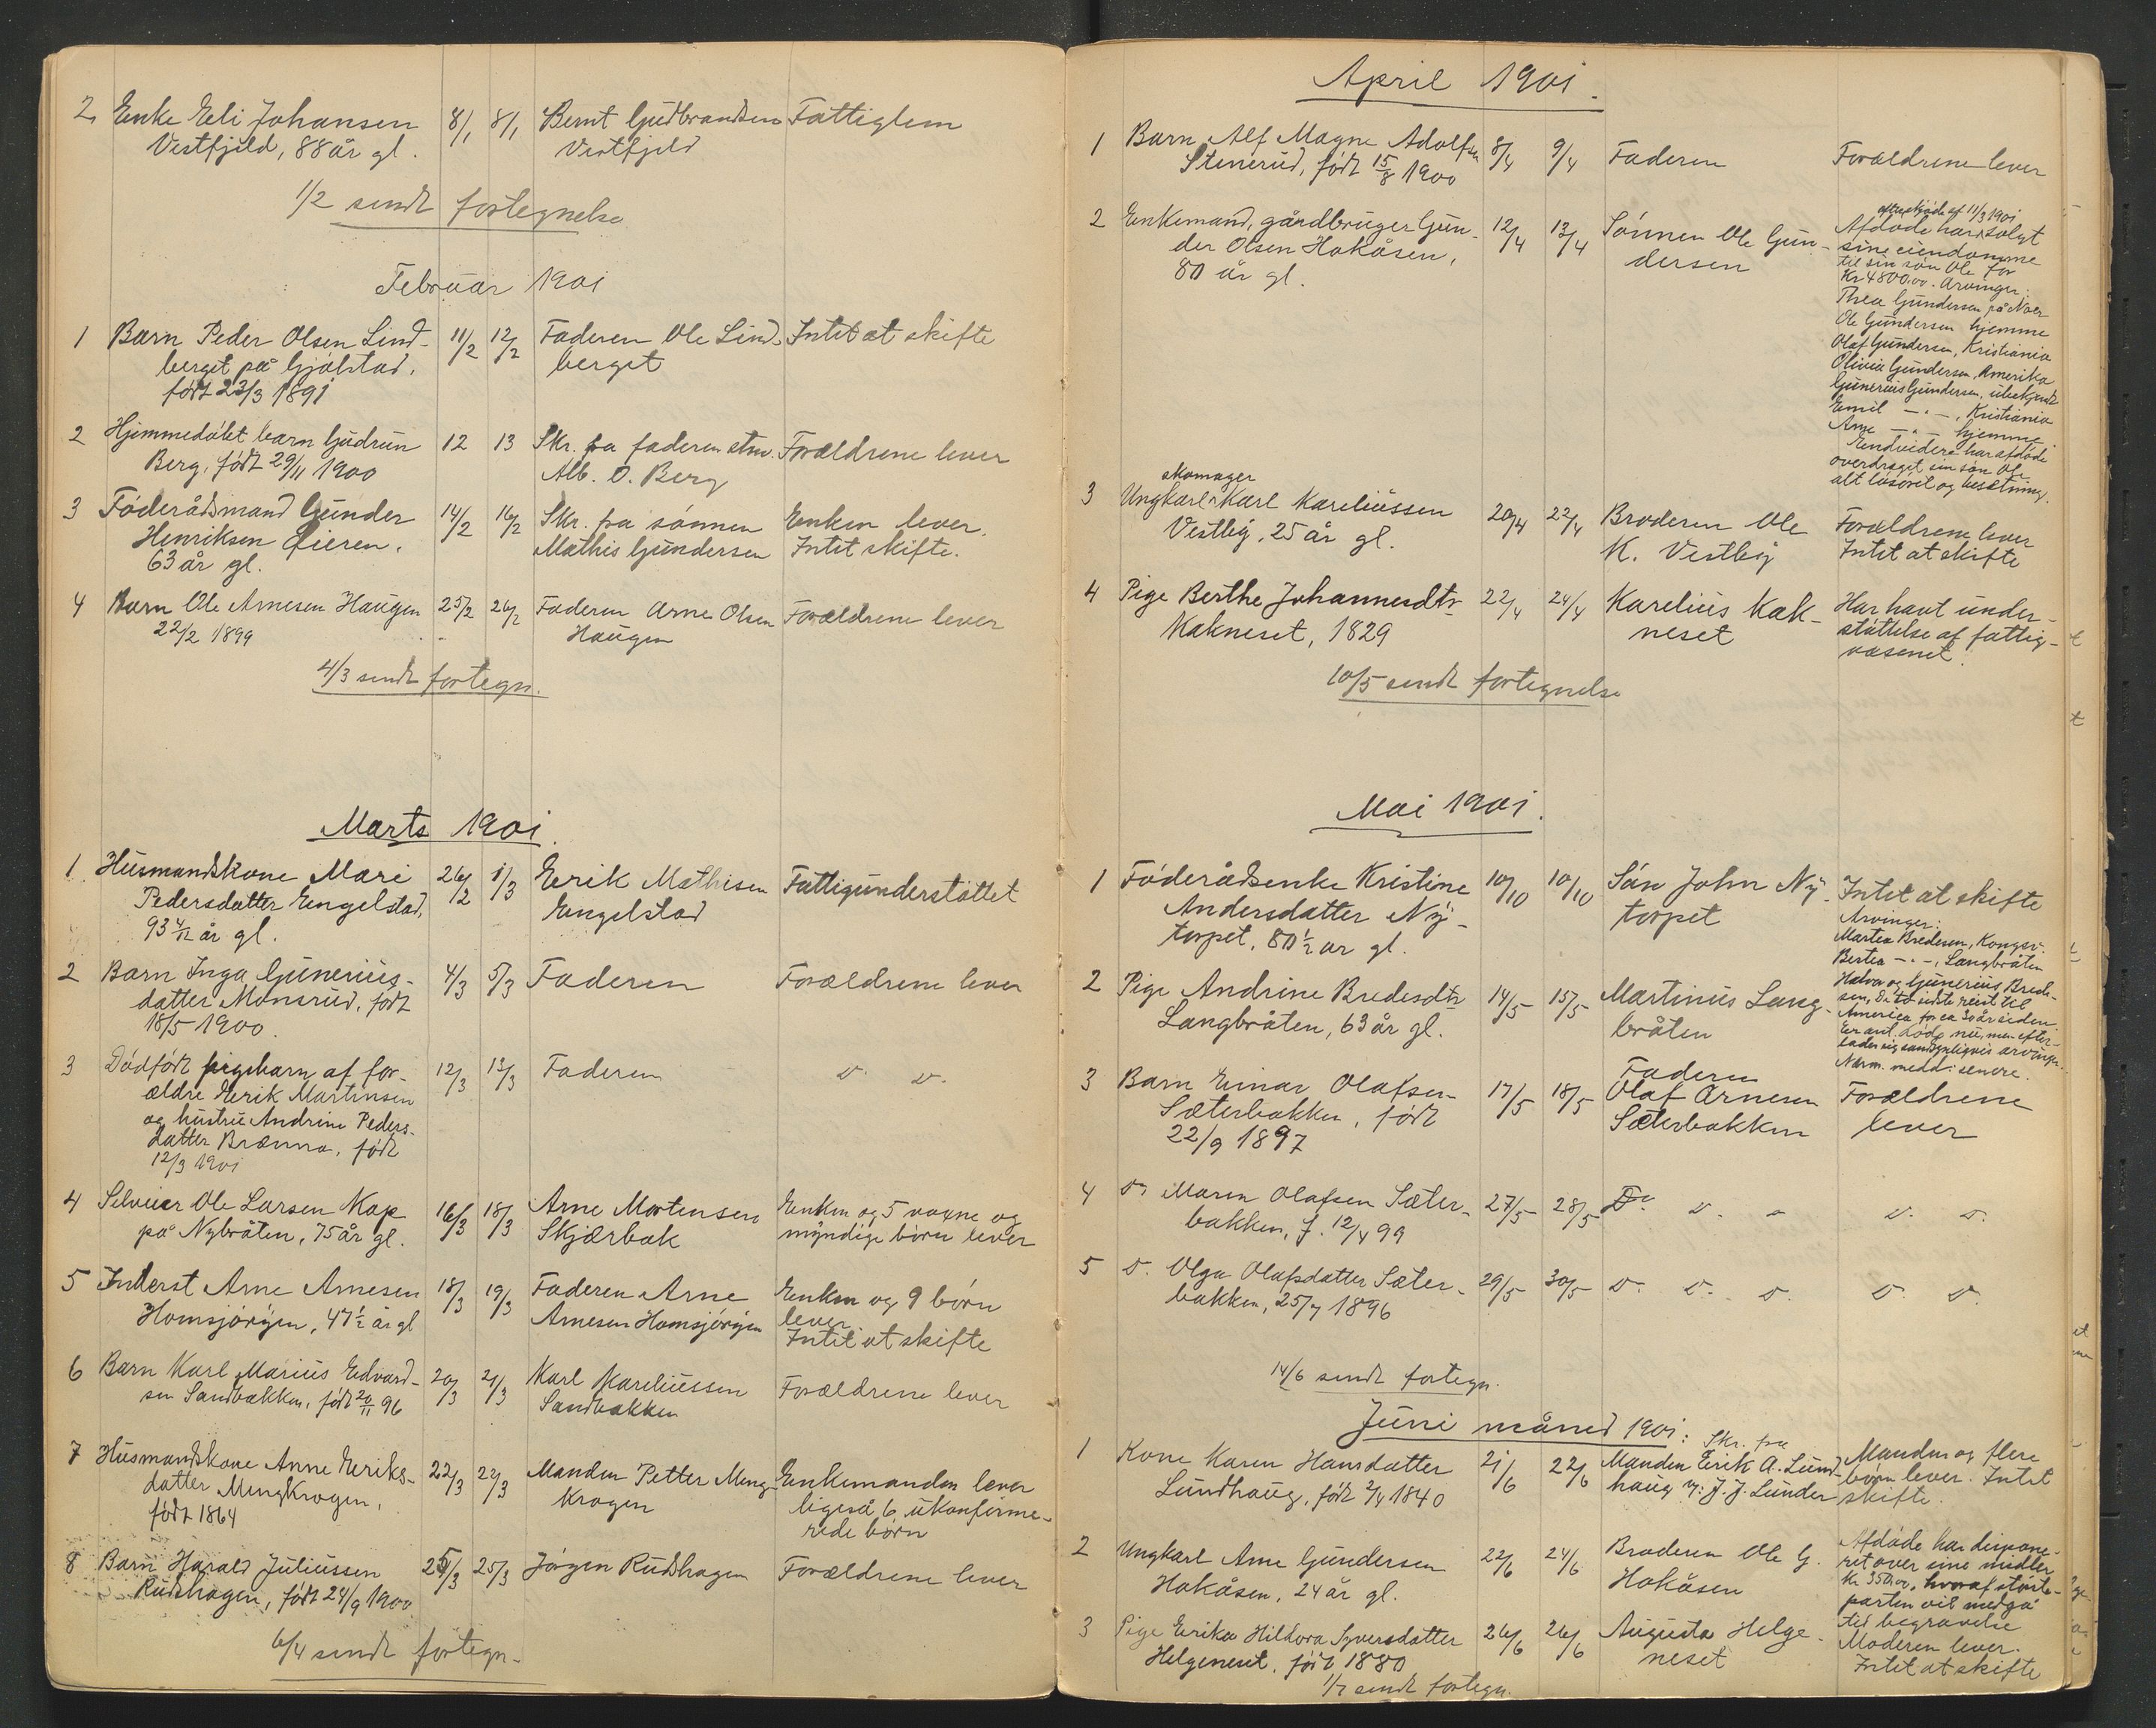 2, Enke Eli Johansen 8/1 8/1 Bernt Gudbrandsen Fattiglem
Vestfjeld, 88 år gl. Vestfjeld
1/2 sendt fortegnelse
Februar 1901
1 Barn Peder Olsen Lind- 11/2 12/2 Faderen Ole Lind- Intet at skifte
berget på Gjølstad, berget
født 23/3 1891
2 Hjemmedøbt barn Gudrun 12 13 Skr. fra faderen Forældrene lever
Berg, født 29/11 1900 Alb. O. Berg
3 Føderådsmand Gunder 14/2 16/2 Skr. fra sønnen Enken lever.
Henriksen Øieren, Mathis Gundersen Intet skifte.
63 år gl.
4 Barn Ole Arnesen Haugen 25/2 26/2 Faderen Arne Olsen Forældrene lever
22/2 1899 Haugen
4/3 sendt fortegn.
Marts 1901.
1 Husmandskone Mari 26/2 1/3 Eerik Mathisen Fattigunderstøttet
Pedersdatter Engelstad, Engelstad
93 4/12 år gl.
2 Barn Inga Gunerius- 4/3 5/3 Faderen Forældrene lever
datter Monsrud, født
18/5 1900.
3 Dødfødt pigebarn af for- 12/3 13/3 Faderen D. D.
ældre Eerik Martinsen
og hustru Andrine Peders-
datter Brænna, født
12/3 1901
4 Selveier Ole Larsen Nap 16/3 18/3 Arne Mortensen Enken og 5 voxne og
på Nybråten, 75 år gl. Skjærbak myndige børn lever
5 Inderst Arne Arnesen 18/3 19/3 Faderen Arne Enken og 9 børn
Homsjørgen, 47 1/2 år gl Arnesen Homsjørgen lever
Intet at skifte
6 Barn Karl Marius Edvard- 20/3 21/3 Karl Kareliussen Forældrene lever
sen Sandbakken, født 20/11 96 Sandbakken
7 Husmandskone Anne Eeriks- 22/3 22/3 Manden Petter Meng- Enkemanden lever
datter Mengkrogen, krogen ligeså 6 ukonfirme-
født 1864 rede børn
8 Barn Harald Juliussen 25/3 25/3 Jørgen Rudshagen Forældrene lever
Rudshagen, født 24/9 1900
6/4 sendt fortegn.
April 1901.
1 Barn Alf Magne Adolfsen 8/4 9/4 Faderen Forældrene lever
Stenerud, født 15/8 1900
2 Enkemand, gårdbruger Gun- 12/4 13/4 Sønnen Ole Gun-
der Olsen Hokåsen, dersen
80 år gl.
efter skjøde af 11/3 1901
Afdøde har solgt
sine eiendomme
til sin søn Ole for
Kr 4800,00. Arvinger:
Thea Gundersen på Noer
Ole Gundersen hjemme
Olaf Gundersen, Kristiania
Olivia Gundersen, Amerika
Gunerius Gundersen, ubekjendt
Emil —"—, Kristiania
Arne —"— hjemme
Endvidere har afdøde
overdraget sin søn Ole
alt løsøret og besætning.
skomager
3 Ungkarl Karl Kareliussen 20/4 22/4 Broderen Ole Forældrene lever
Vestby, 25 år gl. K. Vestby Intet at skifte
4 Pige Berthe Johannesdtr 22/4 24/4 Karelius Kak- Har havt under-
Kakneset, 1829 neset støttelse af fattig-
væsenet.
10/5 sendt fortegnelse
Mai 1901.
1 Føderådsenke Kristine 10/10 10/10 Søn John Ny- Intet at skifte
Andersdatter Ny- torpet
torpet, 80 1/2 år gl.
2 Pige Andrine Bredesdtr 14/5 15/5 Martinus Lang-
Langbråten, 63 år gl. bråten
Arvinger:
Martea Bredesen, Kongsv.
Bertea —"—, Langbråten
Halvor og Gunerius Brede-
sen, De to sidste reist til
America for ca 30 år siden.
Er ant. døde nu, men efter-
lader sig sandsynligvis arvinger.
Nærm. medd. senere.
3 Barn Einar Olafsen 17/5 18/5 Faderen
Sæterbakken, født Olaf Arnesen Forældrene
22/9 1897 Sæterbakken lever
4 D. Maren Olafsen Sæter- 27/5 28/5 Do D. - D. D.
bakken, f. 12/4 99
5 D. Olga Olafsdatter Sæter- 29/5 30/5 D. D. D. D. D.
bakken, 25/7 1896
14/6 sendt fortegn.
Juni måned 1901:
1 Kone Karen Hansdatter 21/6 22/6 Skr. fra Manden og flere
Lundhaug, født 2/4 1840 Manden Eirik A. Lund- børn lever. Intet
haug v: J. J. Lunder skifte.
2 Ungkarl Arne Gundersen 22/6 24/6 Broderen Ole G.
Hokåsen, 24 år gl. Hokåsen
Afdøde har dispone-
ret over sine midler
Kr 350,00, hvoraf største-
parten vil medgå
til begravelse
3 Pige Erika Hildora Syversdatter 26/6 26/6 Augusta Helge- Moderen lever.
Helgeneset, født 1880 neset Intet at skifte
1/7 sendt fortegn.